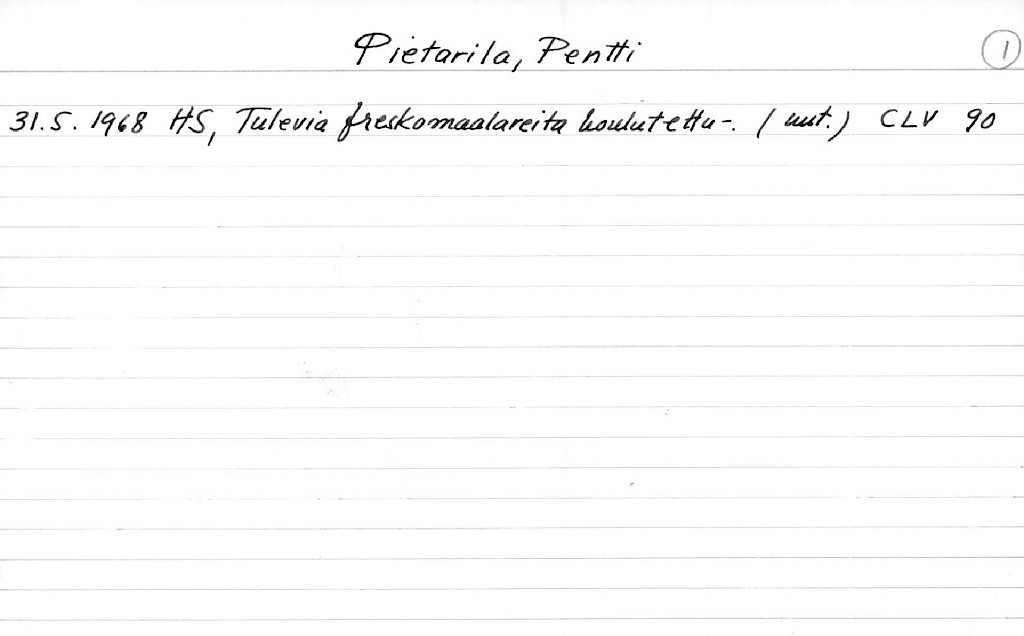 Pietarila, Pentti 1
31.5.1968 HS, Tulevia freskomaalareita koulutettu-. (uut.) CLV 90